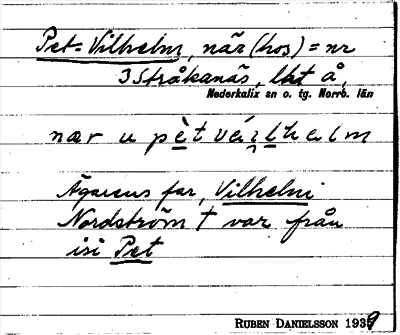 Pet-Vilhelm, när (hos) = nr
3 Stråkanäs, lht å,
Nederkalix sn o. tg. Norrb. län
nær u pèt vílhelm
Ägarens far, Vilhelm
Nordström † var från
isi Pet
RUBEN DANIELSSON 1939